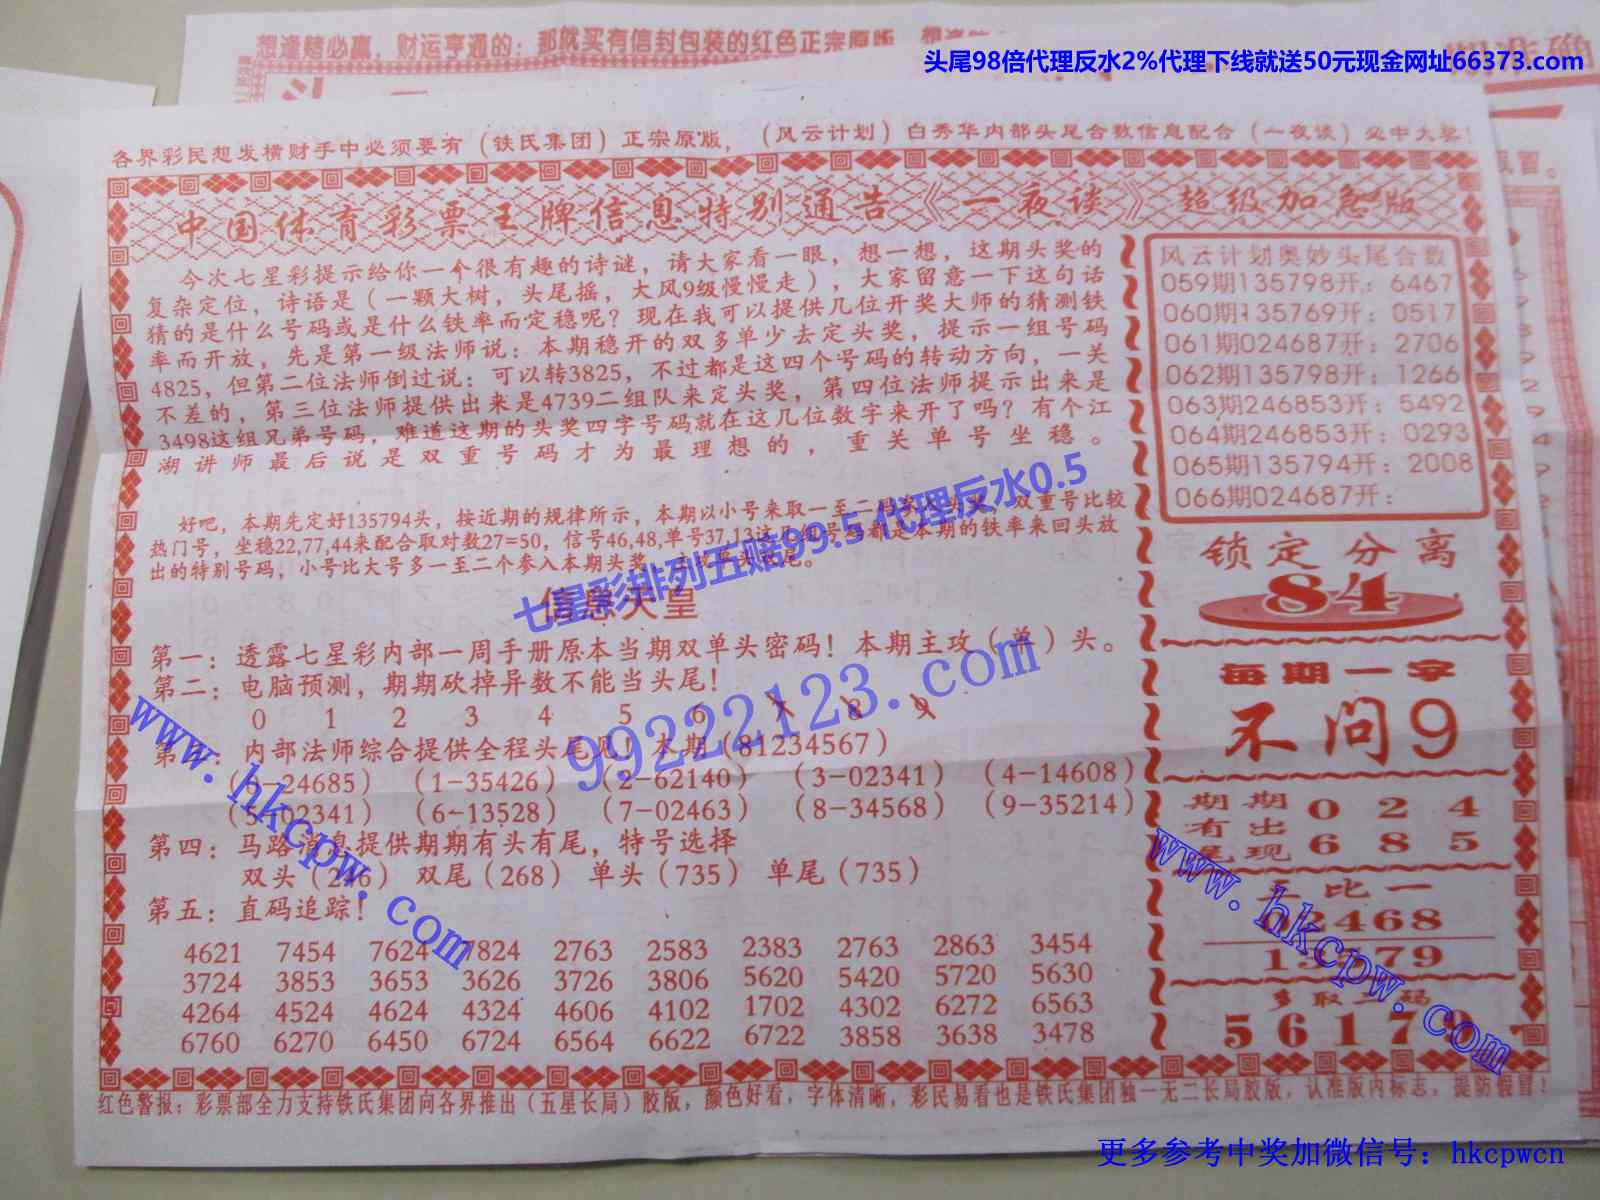 想逢赌必赢，财运亨通的：那就买有信封包装的红色正宗原版
头尾98倍代理反水2%代理下线就送50元现金网址66373.com
各界彩民想发横财手中必须要有（铁氏集团）正宗原版，（风云计划）白秀华内部头尾合数信息配合（一夜谈）必中大奖！
中国体育彩票王牌信息特别通告《一夜谈》超级加急版
今次七星彩提示给你一个很有趣的诗谜，请大家看一眼，想一想，这期头奖的
复杂定位，诗语是（一颗大树，头尾摇，大风9级慢慢走），大家留意一下这句话
猜的是什么号码或是什么铁率而定稳呢？现在我可以提供几位开奖大师的猜测铁
率而开放，先是第一级法师说：本期稳开的双多单少去定头奖，提示一组号码
4825，但第二位法师倒过说：可以转3825，不过都是这四个号码的转动方向，一关
不差的，第三位法师提供出来是4739二组队来定头奖，第四位法师提示出来是
3498这组兄弟号码，难道这期的头奖四字号码就在这几位数字来开了吗？有个江
湖讲师最后说是双重号码才为最理想的，重关单号坐稳。
好吧，本期先定好135794头，按近期的规律所示，本期以小号来取一至二 双重号比较
热门号，坐稳22,77,44来配合取对数27=50，信号46,48,单号37,13这 号码都是本期的铁率来回头放
出的特别号码，小号比大号多一至二个参入本期头奖
七星彩排列五赔99.5代理反水0.5
信息天皇
第一：透露七星彩内部一周手册原本当期双单头密码！本期主攻（单）头。
第二：电脑预测，期期砍掉异数不能当头尾！
0 1 2 3 4 5 6 7 8 9
第三：内部法师综合提供全程头尾见！本期（81234567）
（0-24685）（1-35426）（2-62140）（3-02341）（4-14608）
（5-02341）（6-13528）（7-02463）（8-34568）（9-35214）
第四：马路消息提供期期有头有尾，特号选择
双头（246） 双尾（268） 单头（735） 单尾（735）
第五：直码追踪！
4621 7454 7624 7824 2763 2583 2383 2763 2863 3454
3724 3853 3653 3626 3726 3806 5620 5420 5720 5630
4264 4524 4624 4324 4606 4102 1702 4302 6272 6563
6760 6270 6450 6724 6564 6622 6722 3858 3638 3478
风云计划奥妙头尾合数
059期135798开：6467
060期135769开：0517
061期024687开：2706
062期135798开：1266
063期246853开：5492
064期246853开：0293
065期135794开：2008
066期024687开：
锁定分离
84
每期一字
不问9
期期 0 2 4
有出
尾现 6 8 5
五比一
02468
13579
多取二码
56179
www.hkcpw.com
99222123.com
www.hkcpw.com
红色警报：彩票部全力支持铁氏集团向各界推出（五星长局）胶版，颜色好看，字体清晰，彩民易看也是铁氏集团独一无二长局胶版，认准版内标志，提防假冒！
更多参考中奖加微信号：hkcpwcn